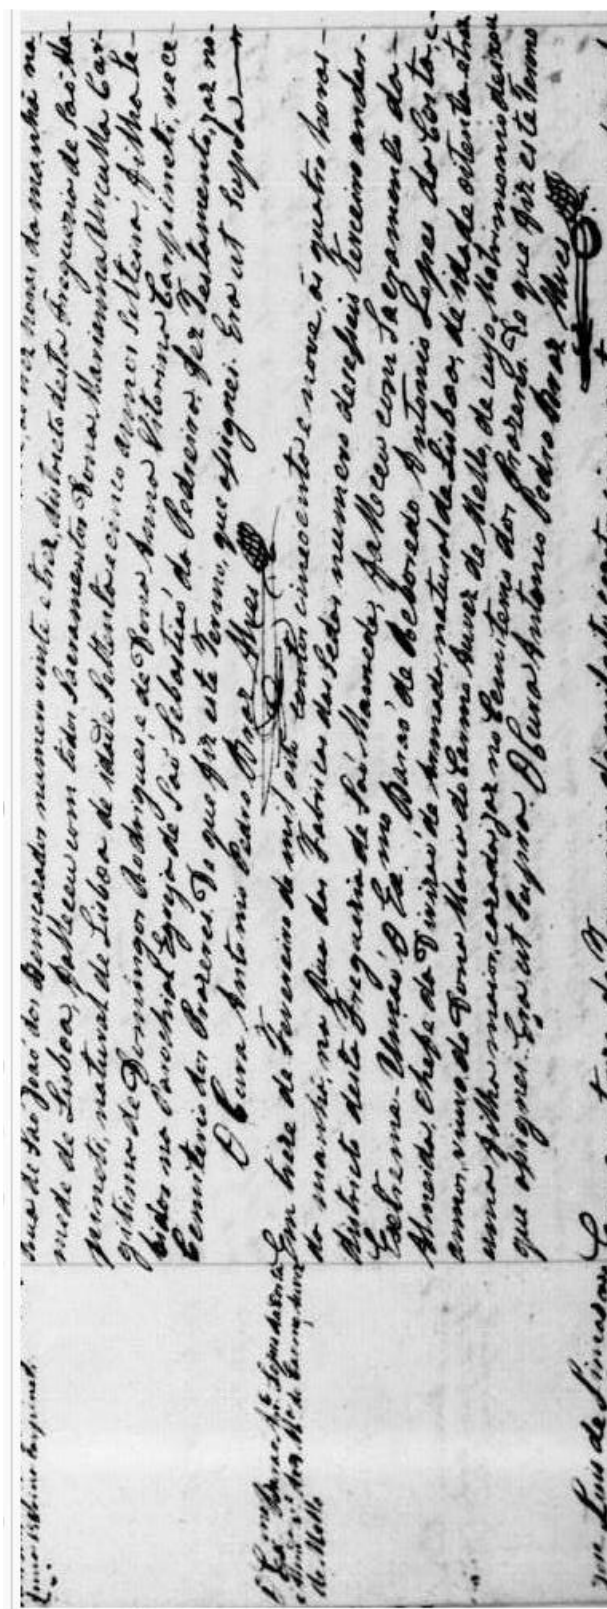 Rua de São João dos Bemcazados numero vinte e trez, districto desta Freguezia de São Ma-
mede de Lisboa, falleceu com todos Sacramentos Dona Marianna Ursulla Car-
pineti, natural de Lisboa de idade settenta e cinco annos solteira, filha le-
gitima de Domingos Rodrigues, e de Dona Anna Vitorina Carpineti, rece-
bidos na Parochial Egreja de São Sebastião da Pedreira. fez Testamento, jaz no
Cemiterio dos Prazeres. De que fiz este Termo, que assignei. Era ut supra
O Cura Antonio Pedro Braz Alves
Em treze de Fevereiro de mil oito centos cincoenta e nove, ás quatro horas
da manhã, na Rua da Fabrica das Sedas numero deseseis terceiro andar,
districto desta Freguezia de São Mamede, falleceu com Sacramento da
Extrema-Unção O Ex.mo Barão de Reboredo Antonio Lopes da Costa, e
Almeida, Chefe de Divizão da Armada, natural de Lisboa, de idade oitenta
annos, viuvo, de Dona Maria do Carmo de Mello, de cujo Matrimonio deixou
uma filha maior, cazada, jaz no Cemiterio dos Prazeres. De que fiz este Termo
que assignei. Era ut supra. O Cura Antonio Pedro Braz Alves
de Mello
Luis de